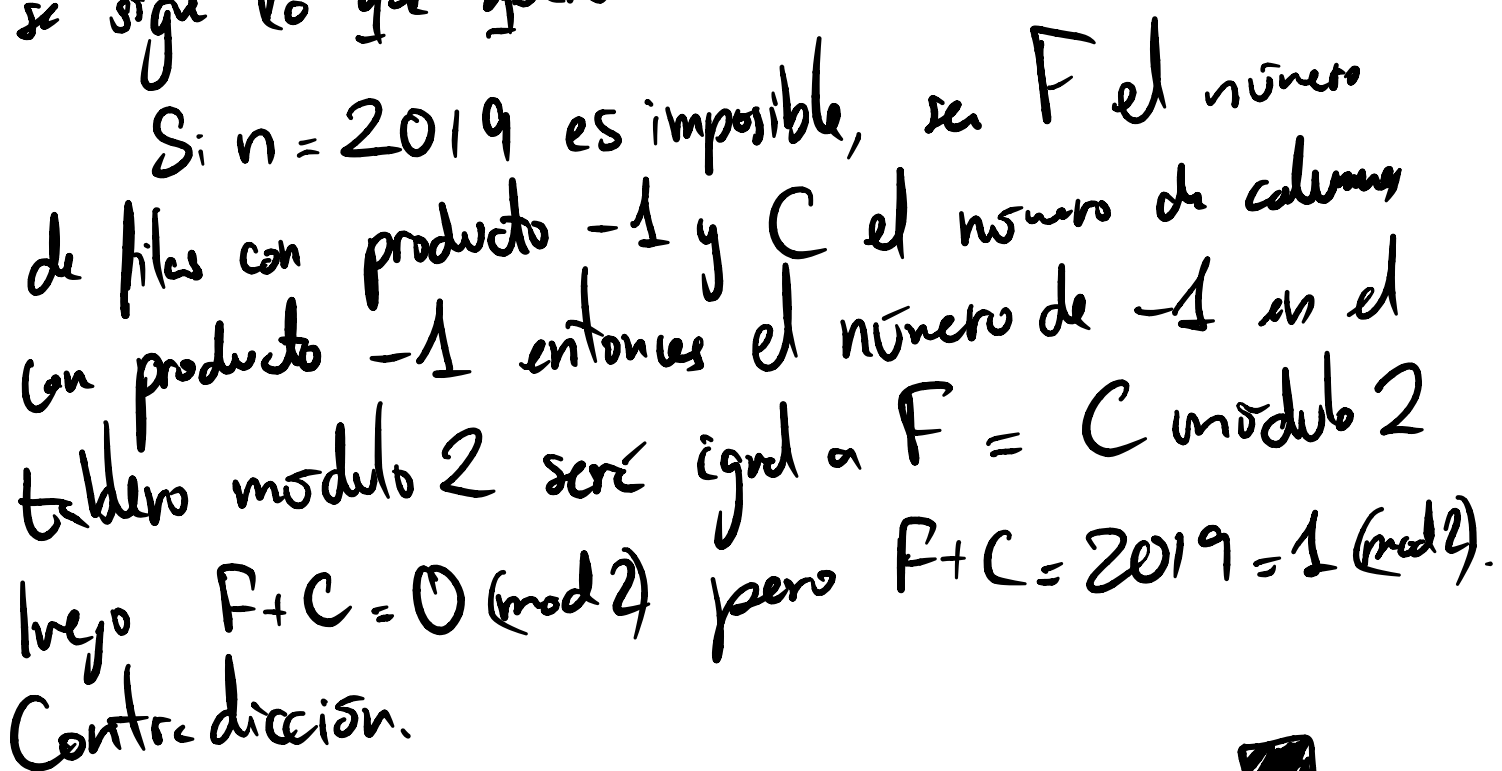 se sigue lo que
Si n = 2019 es imposible, sea F el número
de filas con producto -1 y C el número de columnas
con producto -1 entonces el número de -1 en el
tablero módulo 2 será igual a F = C módulo 2
luego F+C = 0 (mod 2) pero F+C = 2019 = 1 (mod 2).
Contradicción.